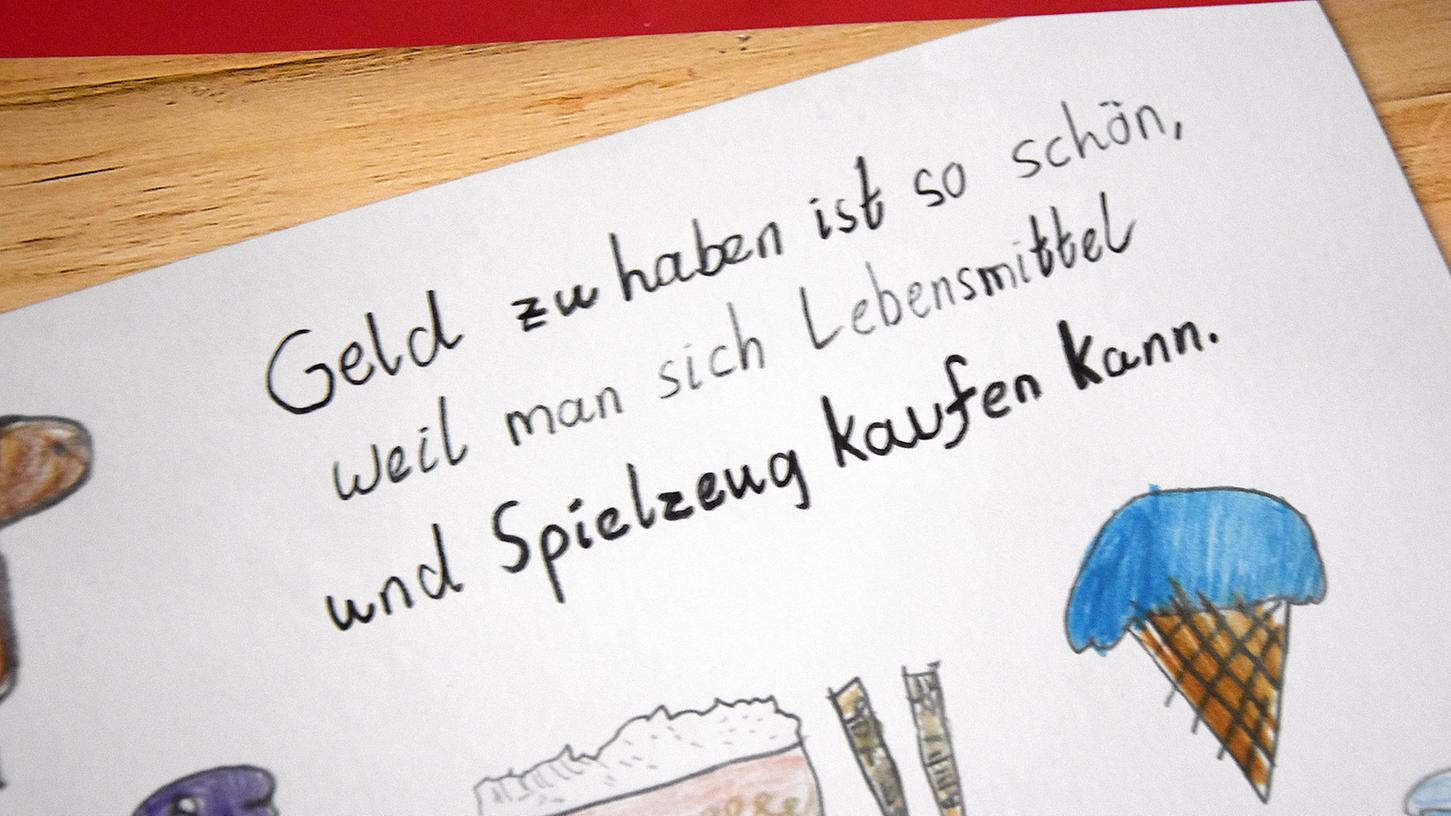 Geld zu haben ist so schön,
weil man sich Lebensmittel
und Spielzeug kaufen kann.